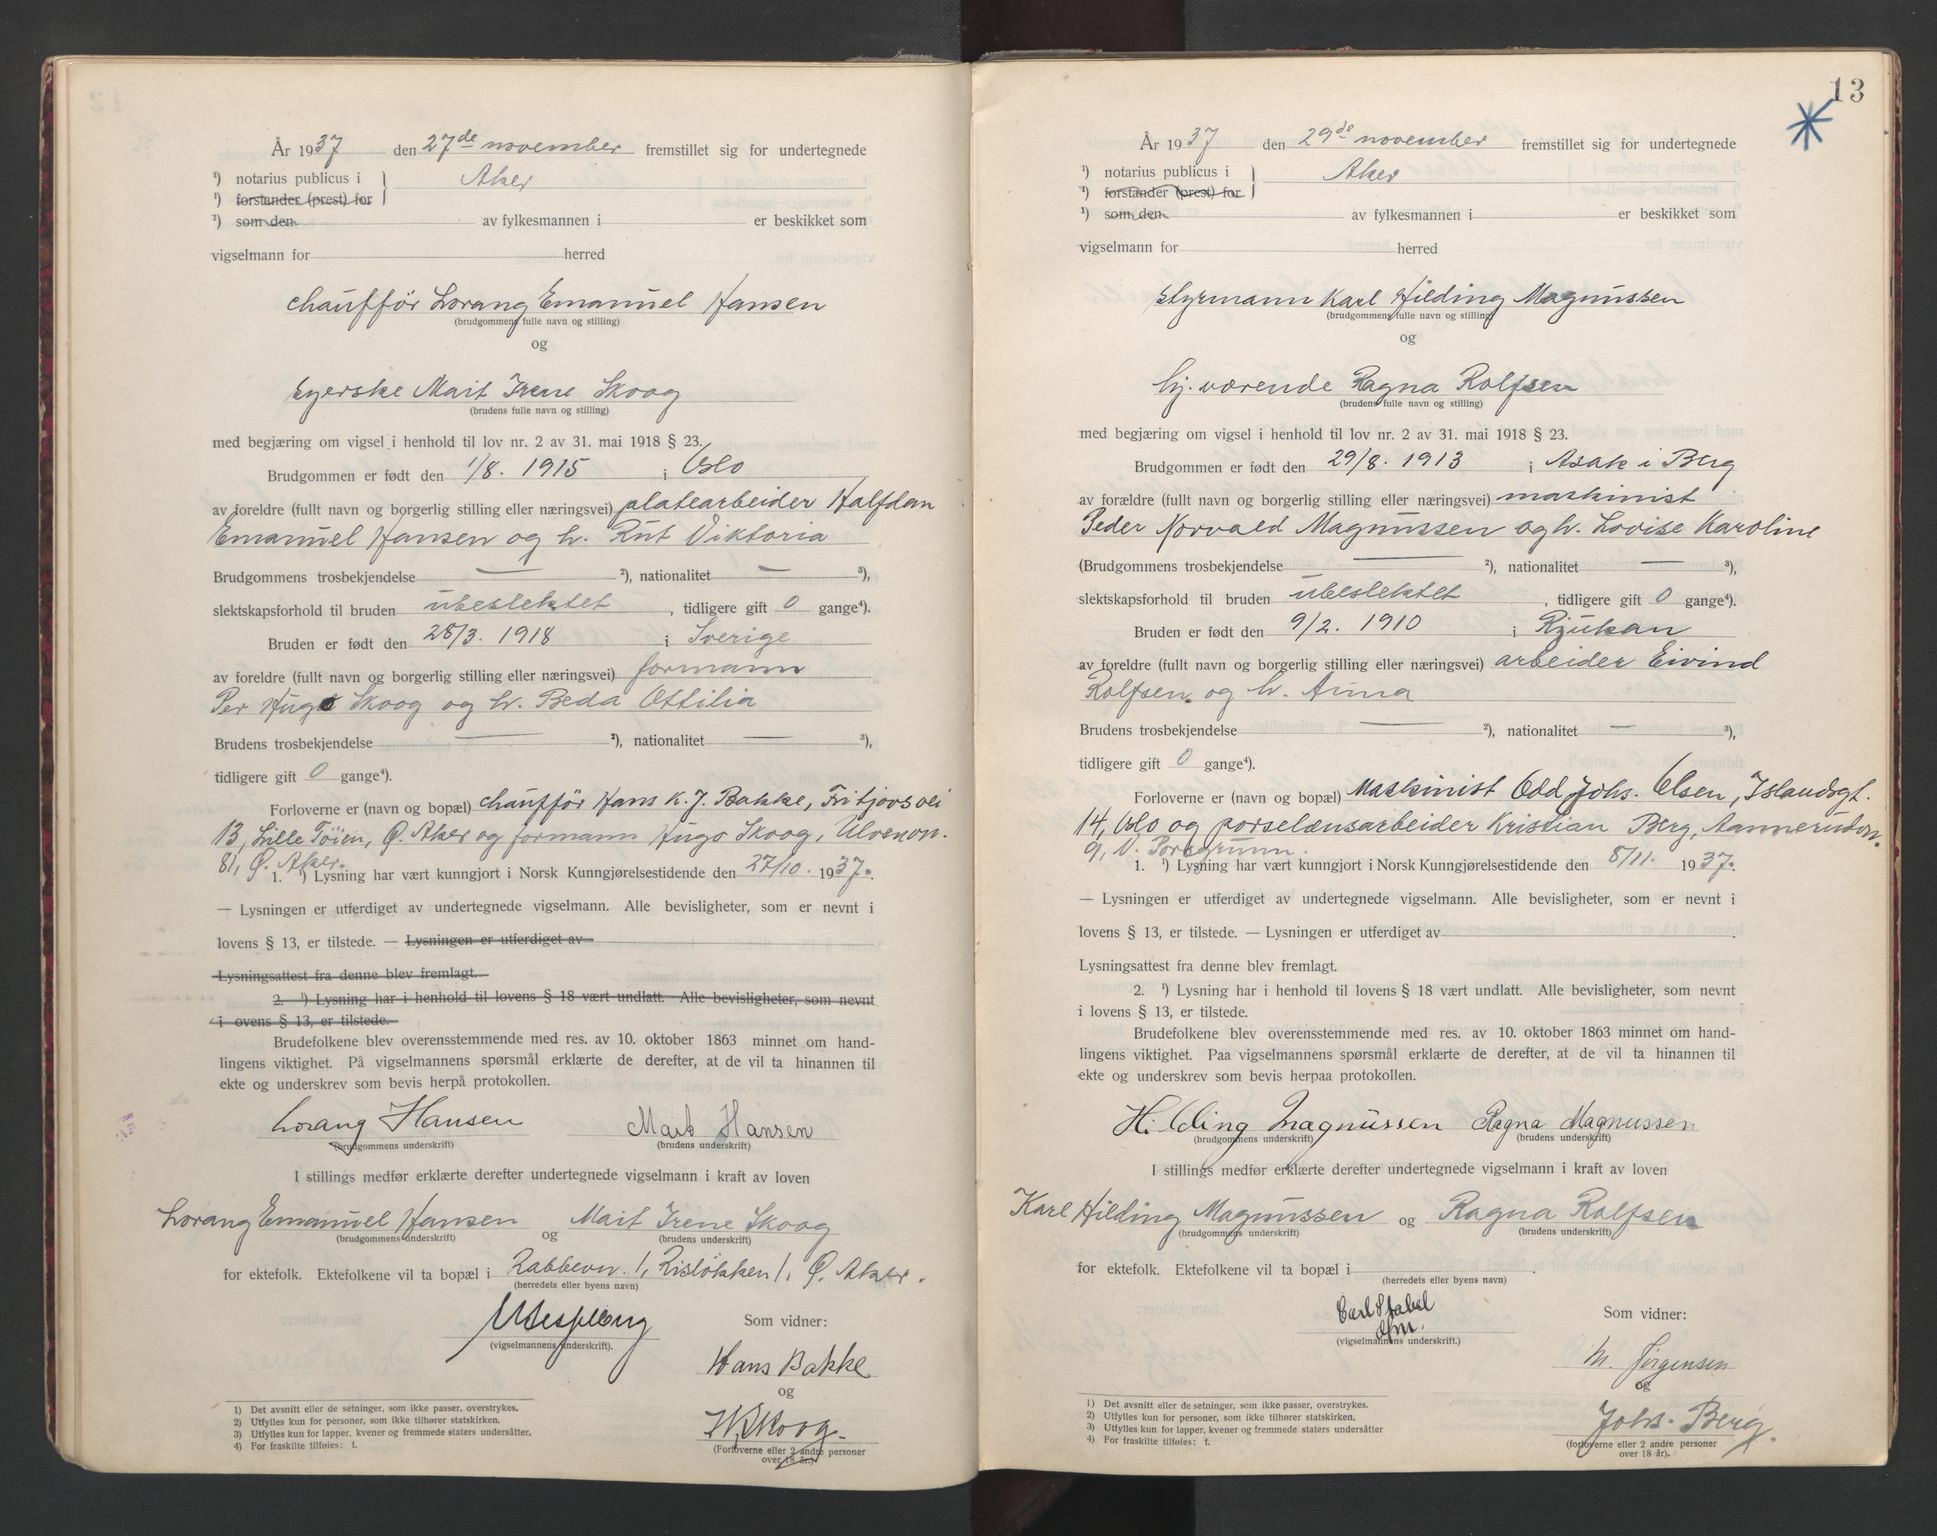 År 1937 den 27de november fremstillet sig for undertegnede
¹) notarius publicus i } Aker
¹) forstander (prest) for
¹) som den av fylkesmannen i er beskikket som
vigselmann for herred
chauffør Lorang Emanuel Hansen
(brudgommens fulle navn og stilling)
og
syerske Mait Irene Skoog
(brudens fulle navn og stilling)
med begjæring om vigsel i henhold til lov nr. 2 av 31. mai 1918 § 23.
Brudgommen er født den 1/8. 1915 i Oslo
av foreldre (fullt navn og borgerlig stilling eller næringsvei) platearbeider Halfdan
Emanuel Hansen og h. Rut Viktoria
Brudgommens trosbekjendelse — ²), nationalitet — ³),
slektskapsforhold til bruden ubeslektet, tidligere gift 0 gange⁴).
Bruden er født den 28/3. 1918 i Sverige
av foreldre (fullt navn og borgerlig stilling eller næringsvei) formann
Per Hugo Skoog og h. Beda Ottilia
Brudens trosbekjendelse — ²), nationalitet — ³),
tidligere gift 0 gange⁴).
Forloverne er (navn og bopæl) chauffør Hans K. J. Bakke, Fritjovs vei
13, Lille Tøien, Ø. Aker og formann Hugo Skoog, Ulvenvn.
81, Ø. Aker.
1. ¹) Lysning har vært kunngjort i Norsk Kunngjørelsestidende den 27/10. 1937.
— Lysningen er utferdiget av undertegnede vigselmann. Alle bevisligheter, som er nevnt i
lovens § 13, er tilstede. — Lysningen er utferdiget av
Lysningsattest fra denne blev fremlagt.
2. ¹) Lysning har i henhold til lovens § 18 vært undlatt. Alle bevisligheter, som nevnt
i ovens § 13, er tilstede.
Brudefolkene blev overensstemmende med res. av 10. oktober 1863 minnet om hand-
lingens viktighet. På vigselmannens spørsmål erklærte de derefter, at de vil ta hinannen til
ekte og underskrev som bevis herpå protokollen.
Lorang Hansen Mait Hansen
(brudgommens underskrift) (brudens underskrift)
I stillings medfør erklærte derefter undertegnede vigselmann i kraft av loven
Lorang Emanuel Hansen og Mait Irene Skoog
(brudgommens underskrift) (brudens underskrift)
for ektefolk. Ektefolkene vil ta bopæl i Rabbevn. 1, Risløkken 1, Ø. Aker.
(herredets eller byens navn)
(vigselmannens underskrift).
Som vidner:
Hans Bakke
og
H. Skoog.
(Forloverne eller 2 andre personer
over 18 år.)
1) Det avsnitt eller de setninger, som ikke passer, overstrykes.
2) Utfylles kun for personer, som ikke tilhører statskirken.
3) Utfylles kun for lapper, kvener og fremmede staters undersåtter.
4) For fraskilte tilføies: f.
13
År 1937 den 29de november fremstillet sig for undertegnede
¹) notarius publicus i } Aker
¹) forstander (prest) for
¹) som den av fylkesmannen i er beskikket som
vigselmann for herred
styrmann Karl Hilding Magnussen
(brudgommens fulle navn og stilling)
og
hj. værende Ragna Rolfsen
(brudens fulle navn og stilling)
med begjæring om vigsel i henhold til lov nr. 2 av 31. mai 1918 § 23.
Brudgommen er født den 29/8. 1913 i Asak i Berg
av forældre (fullt navn og borgerlig stilling eller næringsvei) maskinist
Peder Norvald Magnussen og h. Lovise Karoline
(Brudgommens trosbekjendelse — ²), nationalitet — ³),
slektskapsforhold til bruden ubeslektet, tidligere gift 0 gange⁴).
Bruden er født den 9/2. 1910 i Rjukan
av foreldre (fullt navn og borgerlig stilling eller næringsvei) arbeider Eivind
Rolfsen og h. Anna
Brudens trosbekjendelse — ²), nationalitet — ³),
tidligere gift 0 gange⁴).
Forloverne er (navn og bopæl) Maskinist Odd Johs. Olsen, Islandsgt.
14, Oslo og porselænsarbeider Kristian Berg,
9, V. Porsgrunn.
1. ¹) Lysning har vært kunngjort i Norsk Kunngjørelsestidende den 8/11. 1937.
— Lysningen er utferdiget av undertegnede vigselmann. Alle bevisligheter, som er nevnt i
lovens § 13, er tilstede. — Lysningen er utferdiget av
Lysningsattest fra denne blev fremlagt.
2. ¹) Lysning har i henhold til lovens § 18 vært undlatt. Alle bevisligheter, som nevnt
i lovens § 13, er tilstede.
Brudefolkene blev overensstemmende med res. av 10. oktober 1863 minnet om hand-
lingens viktighet. Paa vigselmannens spørsmål erklærte de derefter, at de vil ta hinannen til
ekte og underskrev som bevis herpaa protokollen.
Hilding Magnussen Ragna Magnussen
(brudgommens underskrift) (brudens underskrift)
I stillings medfør erklærte derefter undertegnede vigselmann i kraft av loven
Karl Hilding Magnussen og Ragna Rolfsen
(brudgommens underskrift) (brudens underskrift)
for ektefolk. Ektefolkene vil ta bopæl i
(herredets eller byens navn)
Carl Stabel
(vigselmannens underskrift.)
Som vidner:
M. Jørgensen
og
Johs. Berg.
(forloverne eller 2 andre personer
over 18 år).
1) Det avsnitt eller de setninger, som ikke passer, overstrykes.
2) Utfylles kun for personer, som ikke tilhører statskirken.
3) Utfylles kun for lapper, kvener og fremmede staters undersåtter
4) For fraskilte tilføies: f.